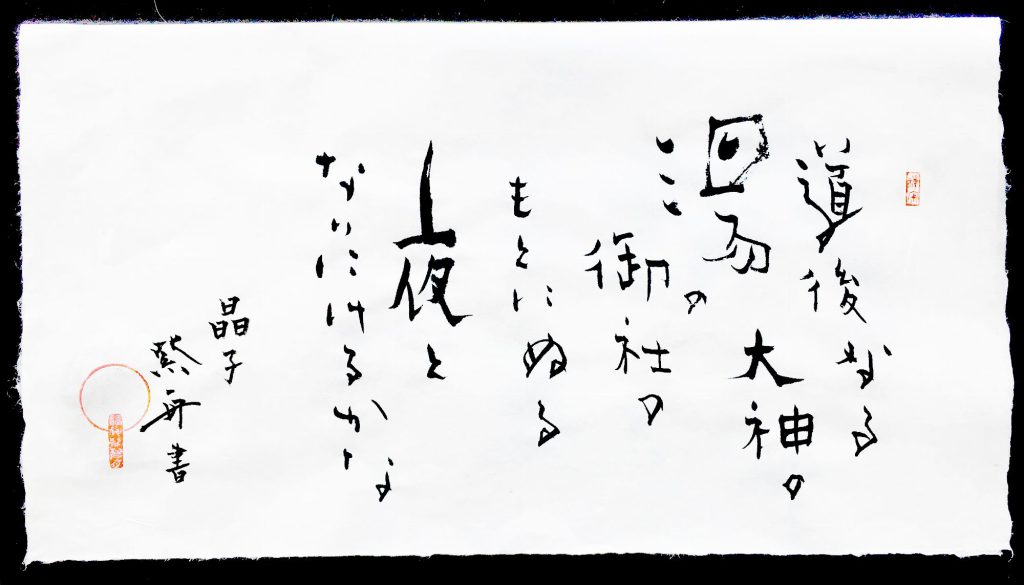 道後なる
湯の大神の
御社の
もとにぬる
夜と
なりにけるかな
晶子
舟書